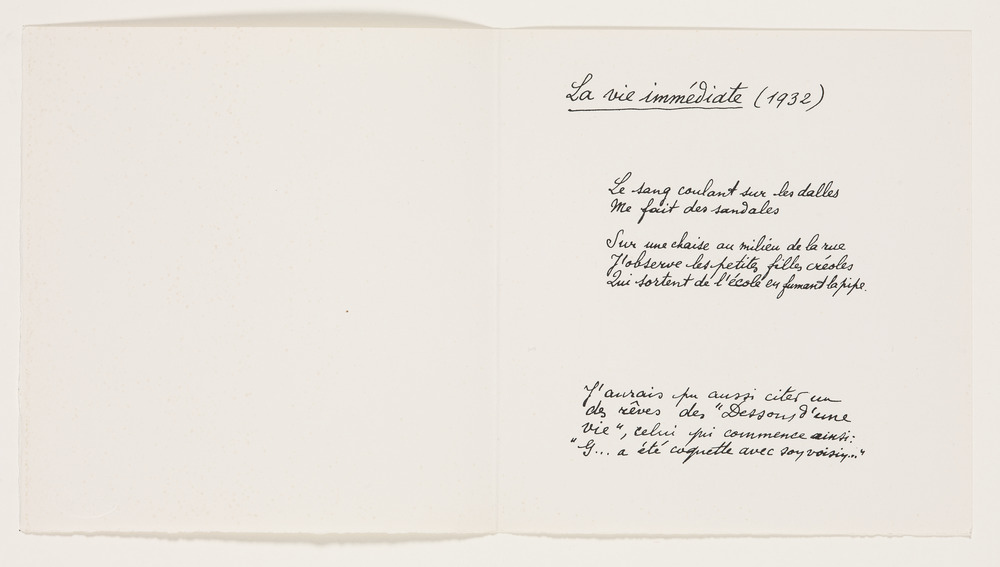 La vie immédiate (1932)
Le sang coulant sur les dalles
Me fait des sandales
Sur une chaise au milieu de la rue
J'observe les petites filles créoles
Qui sortent de l'école en fumant la pipe.
J'aurais pu aussi citer un
des rêves des "Dessous d'une
vie", celui qui commence ainsi:
"G... a été coquette avec son voisin..."